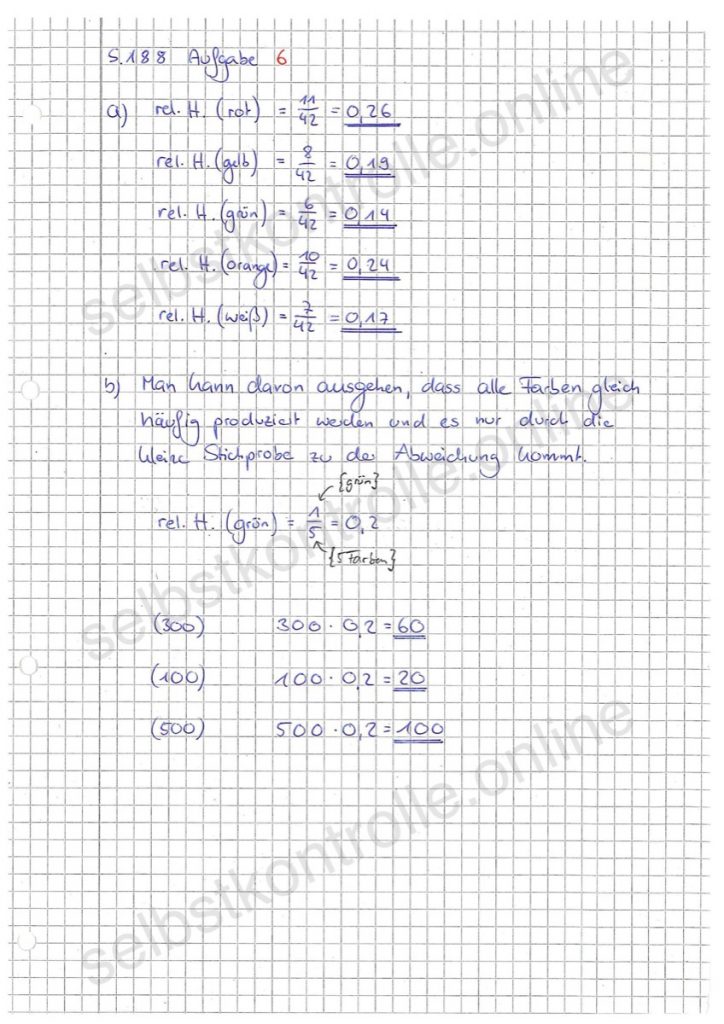 S.188 Aufgabe 6
a) rel. H. (rot) = 11/42 = 0,26
rel. H. (gelb) = 8/42 = 0,19
rel. H. (grün) = 6/42 = 0,14
rel. H. (orange) = 10/42 = 0,24
rel. H. (weiß) = 7/42 = 0,17
b) Man kann davon ausgehen, dass alle Farben gleich
häufig produziert werden und es nur durch die
kleine Stichprobe zu der Abweichung kommt.
{grün}
rel. H. (grün) = 1/5 = 0,2
{5 Farben}
(300) 300 · 0,2 = 60
(100) 100 · 0,2 = 20
(500) 500 · 0,2 = 100
selbstkontrolle.online
selbstkontrolle.online
selbstkontrolle.online